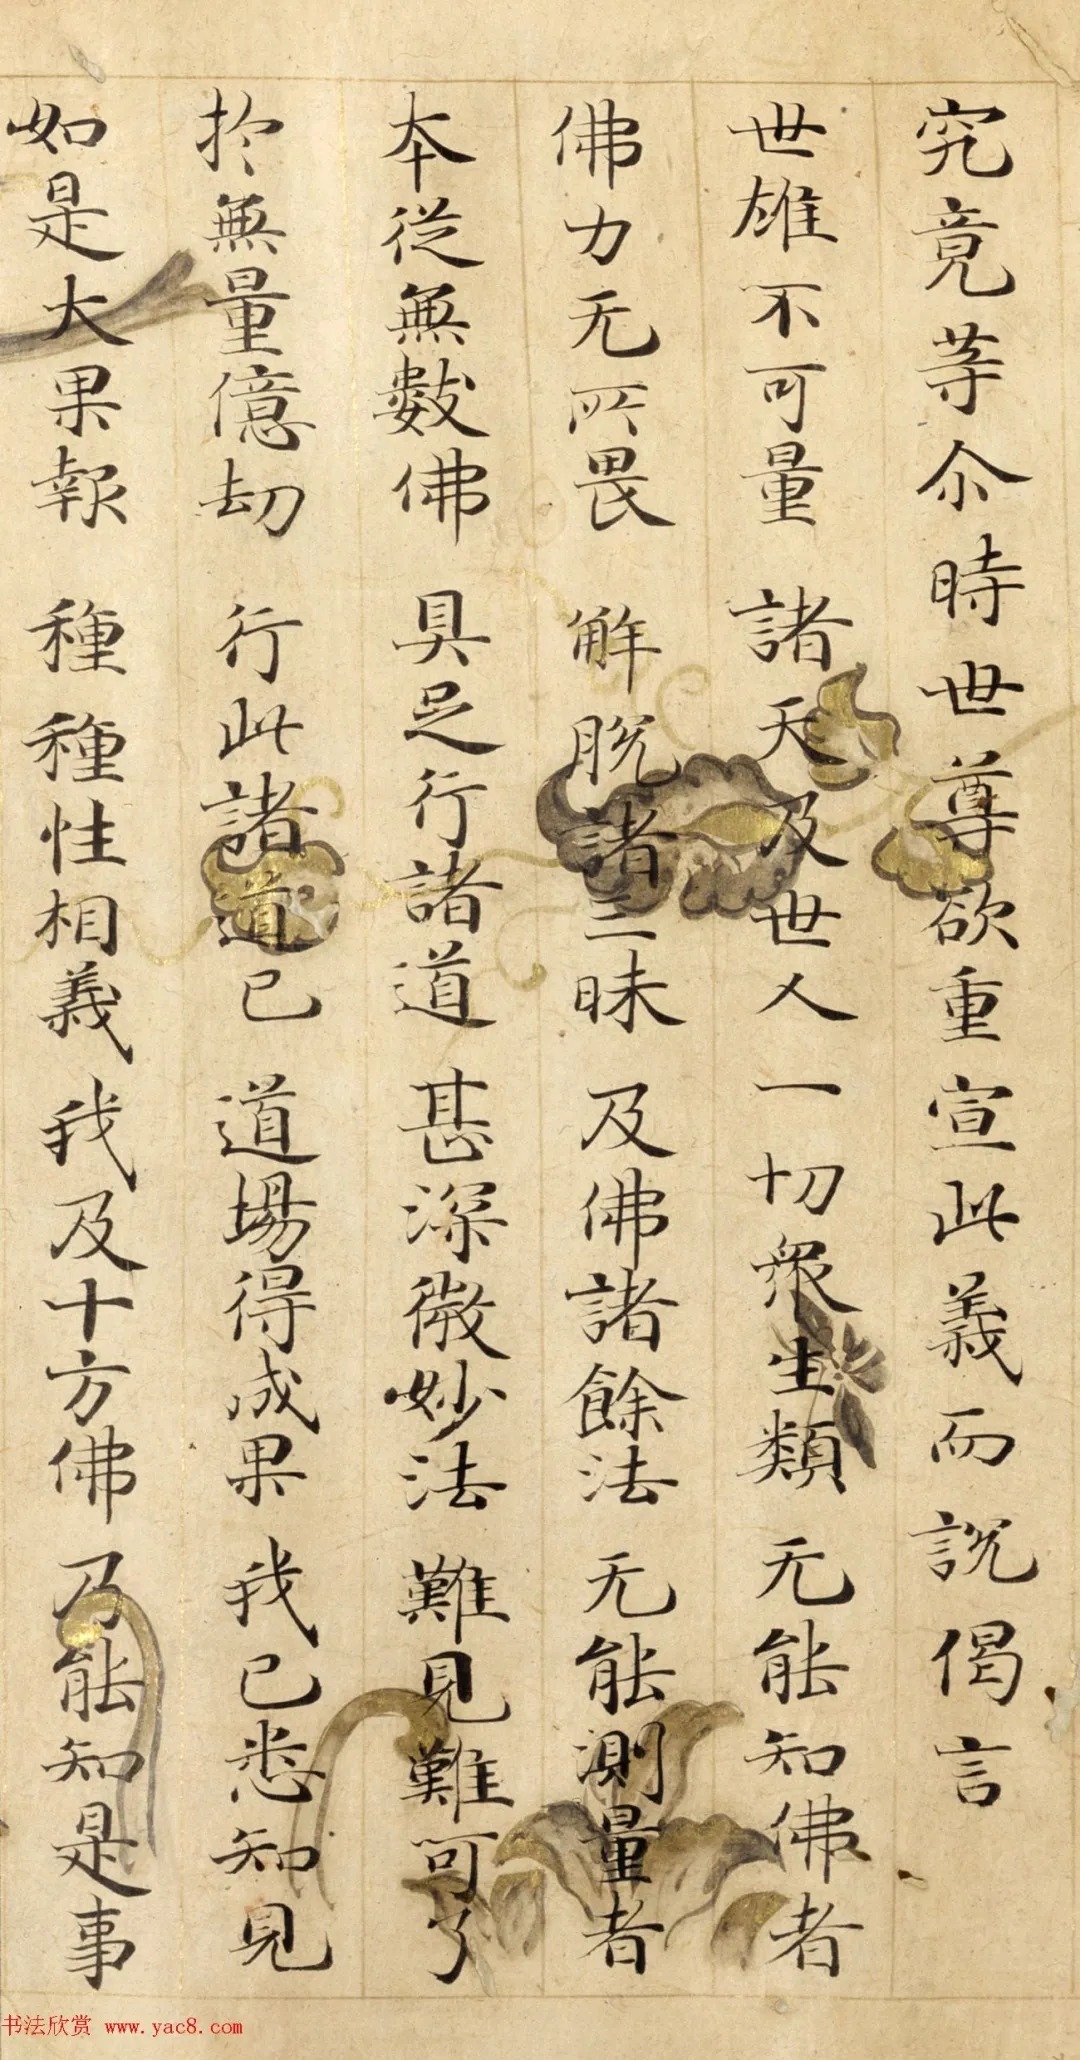 究竟等尒時世尊欲重宣此義而說偈言
世雄不可量 諸天及世人 一切眾生類 无能知佛者
佛力无所畏 解脫諸三昧 及佛諸餘法 无能測量者
本從無數佛 具足行諸道 甚深微妙法 難見難可了
於無量億劫 行此諸道已 道場得成果 我已悉知見
如是大果報 種種性相義 我及十方佛 乃能知是事
书法欣赏 www.yac8.com